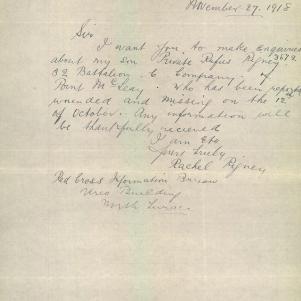 November 27. 1918
Sir
I want you to make enquiries
about my son Private Rufus Rigney 3872.
32 Battalion C Company, of
Point McLeay. Who has been reported
wounded and missing on the 12th
of October. Any information will
be thankfully recieved
I am Etc
Yours truly
Rachel Rigney
Red Cross Information Bureau
Building
North